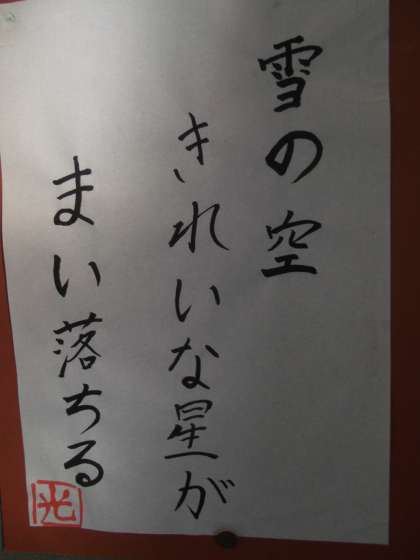 雪の空
きれいな星が
まい落ちる
光